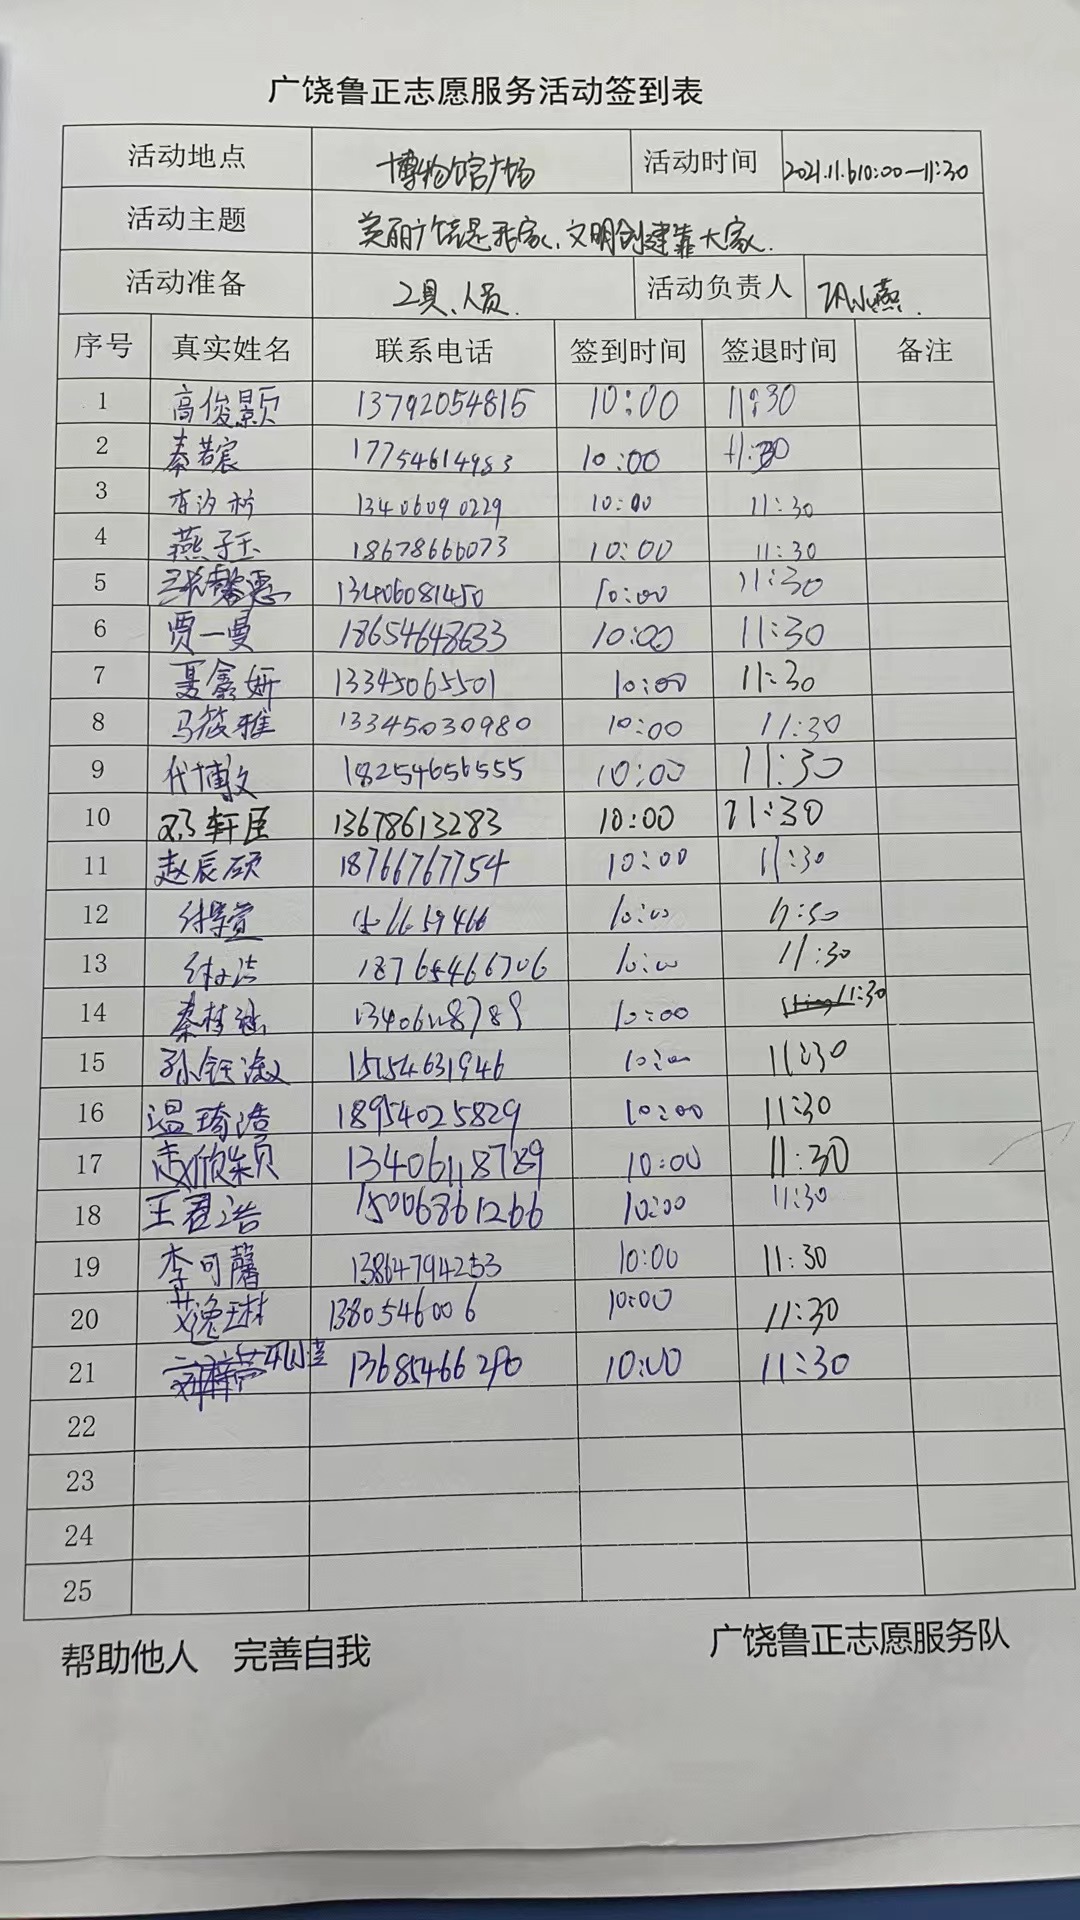 广饶鲁正志愿服务活动签到表
活动地点 博物馆广场 活动时间 2021.11.6 10:00—11:30
活动主题 美丽广饶是我家、文明创建靠大家.
活动准备 工具、人员. 活动负责人 燕.
序号 真实姓名 联系电话 签到时间 签退时间 备注
1 高俊颢 13792054815 10:00 11:30
2 秦若宸 17754614983 10:00 11:30
3 13406090229 10:00 11:30
4 燕子玉 18678666073 10:00 11:30
5 13406081450 10:00 11:30
6 贾一曼 18654648633 10:00 11:30
7 聂鑫妍 13345065501 10:00 11:30
8 马筱雅 13345030980 10:00 11:30
9 代博文 18254656555 10:00 11:30
10 邓轩臣 13678613283 10:00 11:30
11 赵辰硕 18766767754 10:00 11:30
12 10:00 11:30
13 18765466706 10:00 11:30
14 秦梓涵 10:00 11:30
15 孙钰淑 15154631946 10:00 11:30
16 温琦浩 18954025829 10:00 11:30
17 赵欣颖 13406118789 10:00 11:30
18 王君浩 15006861266 10:00 11:30
19 李可馨 13864794253 10:00 11:30
20 艾逸琳 1380546006 10:00 11:30
21 13685466290 10:00 11:30
22
23
24
25
帮助他人 完善自我 广饶鲁正志愿服务队